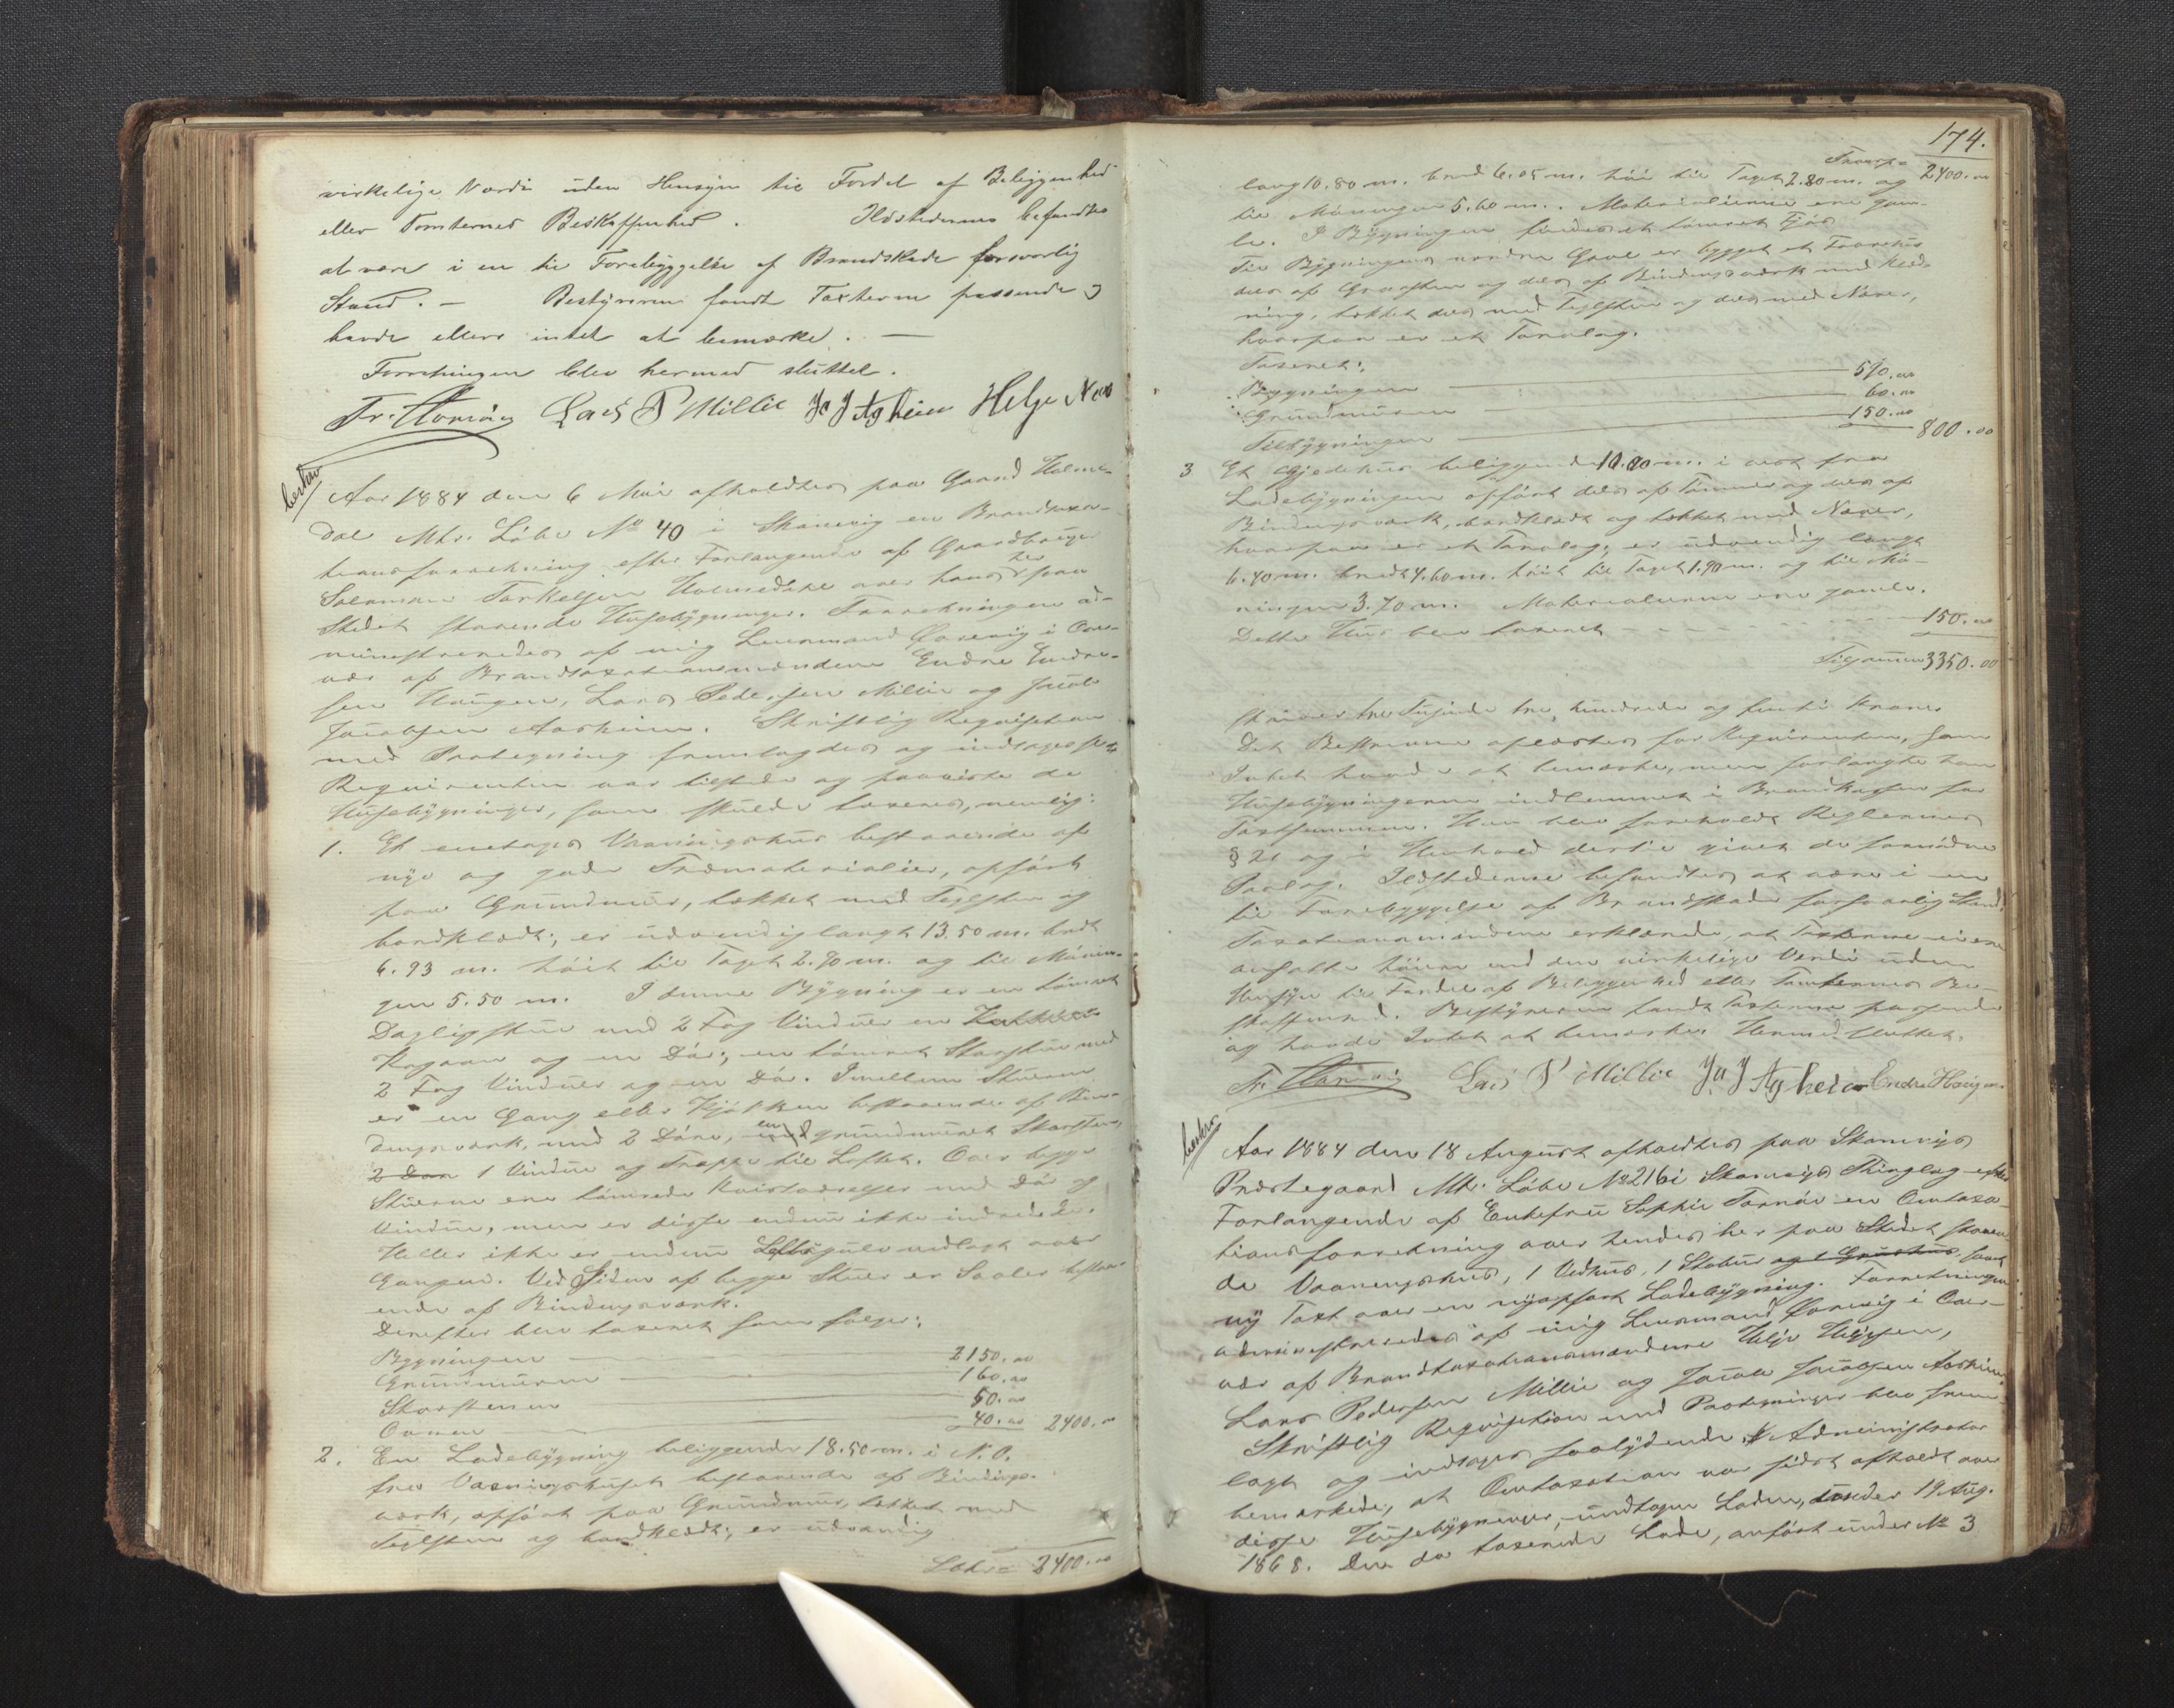 virkelige Værdi uden Hensyn til Fordel af Beliggenhed
eller Tomternes Beskaffenhed. Ildstederne befandtes
at være i en til Forebyggelse af Brandskade forsvarlig
Stand. — Bestyreren fandt Taxterne passende og
havde ellers intet at bemærke. —
Forretningen blev hermed sluttet.
Lars P Millie Ja J Asheim Helje
Aar 1884 den 6 Mai afholdtes paa Gaard Holme-
dal Mtr. Løbe No 40 i Skanevig en Brandtaxa-
tionsforretning efter Forlangende af Gaardbruger
Salamon Torkelsen Holmedal over hans her paa
Stedet staaende Husebygninger. Forretningen ad-
ministreredes af mig Lensmand i Over-
vær af Brandtaxationsmændene Endre Endre-
sen Haugen, Lars Pedersen Millie og Jacob
Jacobsen Aasheim. Skriftlig Reqvisition
med Paategning fremlagdes og indtages
Reqvirenten var tilstede og paaviste de
Husebygninger, som skulde taxeres, nemlig:
1. Et enetages Vaaningshus bestaaende af
nye og gode Træmaterialier, opført
paa Grundmur, tækket med Teglsten og
bordklædt; er udvendig langt 13.50 m. bredt
6.93 m. høit til Taget 2.90 m. og til Mønin-
gen 5.50 m. I denne Bygning er en tømret
Dagligstue med 2 Fag Vinduer en
Kogeovn og en Dør; en tømret Storstue med
2 Fag Vinduer og en Dør. Imellem Stuerne
er en Gang eller Kjøkken bestaaende af Bin-
dingsværk, med 2 Døre, en grundmuret Skorsten,
2 Døre 1 Vindue og Trappe til Loftet. Over begge
Stuerne ere tømrede Kvistværelser med Dør og
Vindue, men er disse endnu ikke indredede.
Heller ikke er endnu Loftsgulv nedlagt over
Gangen. Ved Siden af begge Stuer er Svaler bestaa-
ende af Bindingsværk.
Derefter blev taxeret som følger:
Bygningen 2150.00
Grundmuren 160.00
Skorstenen 50.00
Ovnen 40.00 2400.00
2. En Ladebygning beliggende 18.50 m. i N.O.
fra Vaaningshuset bestaaende af Bindings-
værk, opført paa Grundmur, tækket med
Teglsten og bordklædt; er udvendig
Latus 2400.00
174.
Transp. 2400.00
lang 10.80 m. bred 6.05 m. høi til Taget 2.80 m. og
til Møningen 5.60 m. Materialierne ere gam-
le. I Bygningen findes et tømret Fjøs
Til Bygningens nordre Gavl er bygget et Faarehus
dels af Graasten og dels af Bindingsværk med Klæd-
ning, tækket dels med Teglsten og dels med Næver,
hvorpaa er et Torvlag.
Taxeret:
Bygningen 590.00
Grundmuren 60.00
Tilbygningen 150.00
800.00
3 Et Gjedehus beliggende 10.20 m. i vest fra
Ladebygningen opført dels af Tømmer og dels af
Bindingsværk, bordklædt og tækket med Næver,
hvorpaa er et Torvlag; er udvendig langt
6.40 m. bredt 4.60 m. høit til Taget 1.90 m. og til Mø-
ningen 3.70 m. Materialierne ere gamle.
Dette Hus blev taxeret 150.00
Tilsammen 3350.00
skriver tre Tusinde tre hundrede og femti Kroner
Det Beskrevne oplæstes for Reqvirenten, som
Intet havde at bemærke, men forlangte han
Husebygningerne indlemmet i Brandkassen for
Taxtsummen. Han blev foreholdt Reglernes
§ 21 og i Henhold dertil givet de fornødne
Paalæg. Ildstederne befandtes at være i en
til Forebyggelse af Brandskade forsvarlig Stand.
Taxationsmændene erklærede, at Taxterne ei ere
ansatte høiere end den virkelige Værdi uden
Hensyn til Fordel af Beliggenhed eller Tomternes Be-
skaffenhed. Bestyreren fandt Taxterne passende
og havde Intet at bemærke. Hermed sluttet.
Lars P Millie Ja J Asheim Endre Haugen
Aar 1884 den 18 August afholdtes paa Skanevigs
Præstegaard Mtr. Løbe No 216 i Skanevigs Thinglag efter
Forlangende af Enkefru Sophie Tornøe en Omtaxa-
tionsforretning over hendes her paa Stedet staaen-
de Vaaningshus, 1 Vedhus, 1 Stabur og 1 Grushus, samt
ny Taxt over en nyopført Ladebygning. Forretningen
administreredes af mig Lensmand i Over-
vær af Brandtaxationsmændene Helje Heljesen,
Lars Pedersen Millie og Jacob Jacobsen Aasheim.
Skriftlig Reqvisition med Paategninger blev frem-
lagt og indtages saalydende. Administrator
bemærkede, at Omtaxation var sidst afholdt over
disse Husebygninger, undtagen Laden, under 19 Aug.
1868. Den da taxerede Lade, anført under No 3